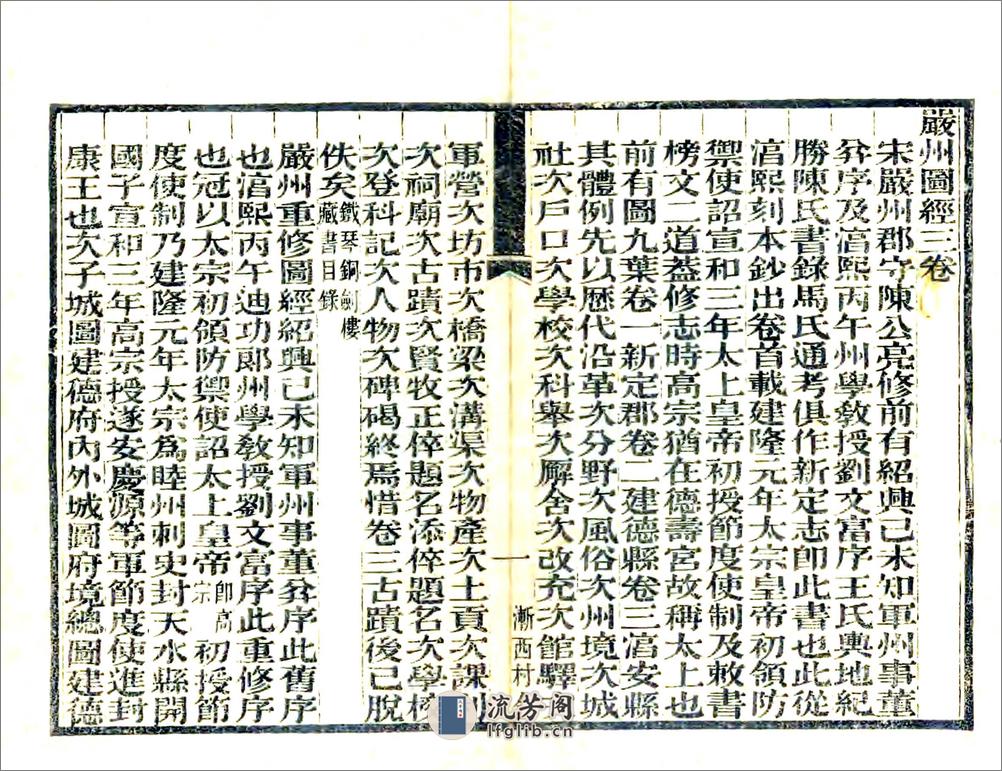 嚴州圖經三卷
宋嚴州郡守陳公亮修前有紹興己未知軍州事董
弅序及湻熙丙午州學敎授劉文富序王氏輿地紀
勝陳氏書錄馬氏通考俱作新定志卽此書也此從
湻熙刻本鈔出卷首載建隆元年太宗皇帝初領防
禦使詔宣和三年太上皇帝初授節度使制及敕書
榜文二道葢修志時高宗猶在德壽宮故稱太上也
前有圖九葉卷一新定郡卷二建德縣卷三湻安縣
其體例先以歷代沿革次分野次風俗次州境次城
社次戶口次學校次科舉次廨舍次改充次館驛
一 漸西村
軍營次坊市次橋梁次溝渠次物產次土貢次課利
次祠廟次古蹟次賢牧正倅題名添倅題名次學校
次登科記次人物次碑碣終焉惜卷三古蹟後已脫
佚矣鐵琴銅劍樓藏書目錄
嚴州重修圖經紹興己未知軍州事董弅序此舊序
也湻熙丙午迪功郞州學敎授劉文富序此重修序
也冠以太宗初領防禦使詔太上皇帝卽高宗初授節
度使制乃建隆元年太宗爲睦州刺史封天水縣開
國子宣和三年高宗授遂安慶源等軍節度使進封
康王也次子城圖建德府內外城圖府境總圖建德
流芳阁
lfglib.cn